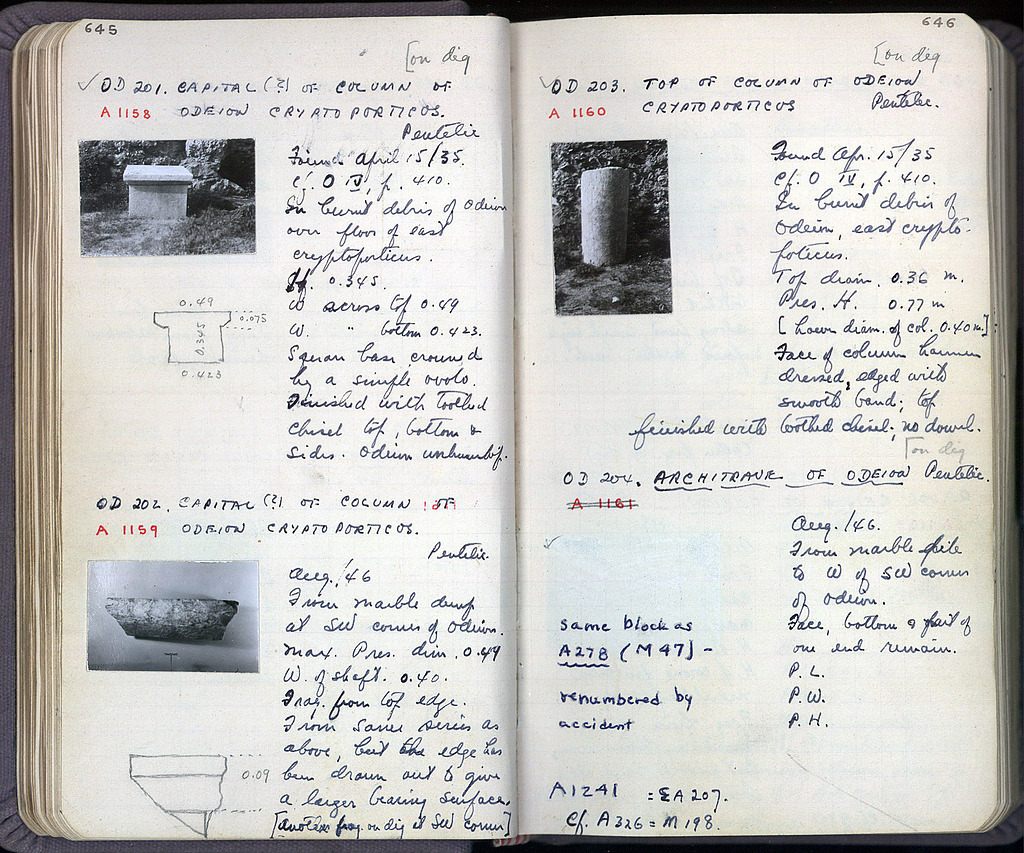 645
[on dig
OD 201. CAPITAL (?) OF COLUMN OF
A 1158 ODEION CRYPTOPORTICUS.
Pentelic
Found April 15/35.
Cf. O IV, p. 410.
In burnt debris of Odeion
over floor of east
cryptoporticus.
H. 0.345
W across top 0.49
W. " bottom 0.423.
Square base crowned
by a simple ovolo.
Finished with toothed
chisel top, bottom &
sides. Odeion
0.49
0.075
0.345
0.423
OD 202. CAPITAL (?) OF COLUMN OF
A 1159 ODEION CRYPTOPORTICUS.
Pentelic
Aug./46
From marble dump
at SW corner of Odeion.
Max. Pres. dim. 0.49
W. of shaft. 0.40.
Frag. from top edge.
From same series as
above, but the edge has
been drawn out to give
a larger bearing surface.
[Another frag. on dig at SW corner]
0.09
646
[on dig
OD 203. TOP OF COLUMN OF ODEION
A 1160 CRYPTOPORTICUS Pentelic.
Found Apr. 15/35
Cf. O IV, p. 410.
In burnt debris of
Odeion, east crypto-
porticus.
Top diam. 0.36 m.
Pres. H. 0.77 m
[ diam. of col. 0.40 m.]
Face of column hammer
dressed, edged with
smooth band; top
finished with toothed chisel; no dowel.
[on dig
OD 204. ARCHITRAVE OF ODEION Pentelic.
A 1161
Aug. /46.
From marble pile
to W of SW corner
of Odeion.
Face, bottom & part of
one end remain.
P. L.
P. W.
P. H.
same block as
A278 (M 47) -
renumbered by
accident
A1241 = ΣA 207.
Cf. A 326 = M 198.